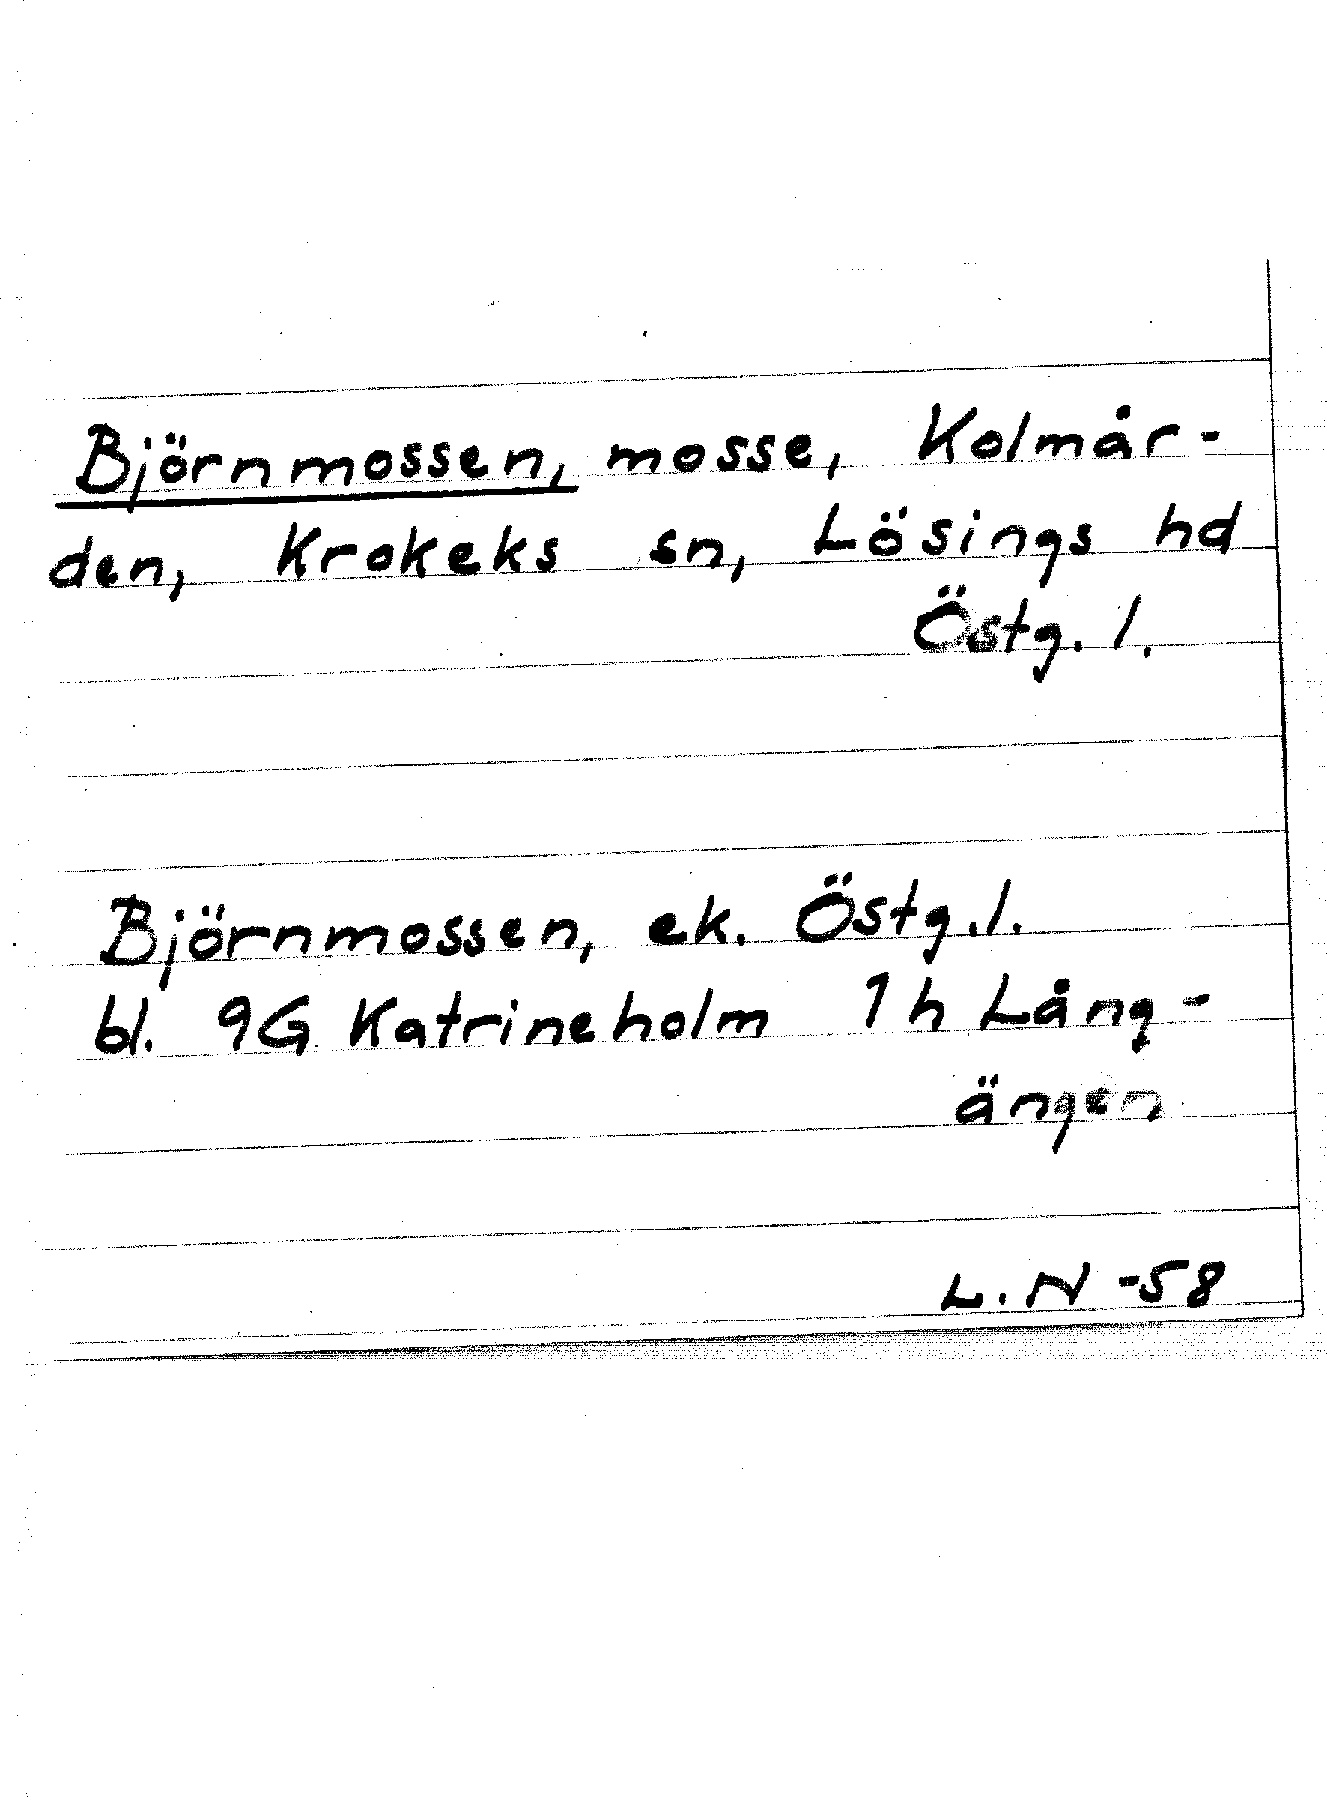 Björnmossen, mosse, Kolmår-
den, Krokeks sn, Lösings hd
Östg. l.
Björnmossen, ek. Östg. l.
bl. 9G Katrineholm 1h Lång-
ängen
L. N -58